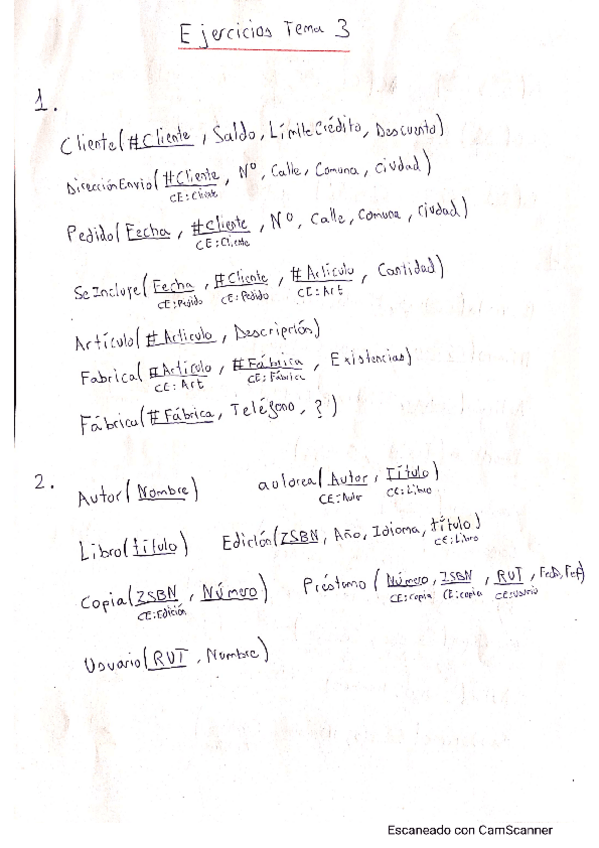 Ejercicios Tema 3
1.
Cliente(#Cliente, Saldo, Límite Crédito, Descuento)
Dirección Envio(#Cliente, Nº, Calle, Comuna, Ciudad)
CE:Cliente
Pedido(Fecha, #Cliente, Nº, Calle, Comuna, Ciudad)
CE:Cliente
Se Incluye(Fecha, #Cliente, #Artículo, Cantidad)
CE:Pedido CE:Pedido CE:Art
Artículo(#Articulo, Descripción)
Fabrica(#Artículo, #Fábrica, Existencias)
CE:Art CE:Fábrica
Fábrica(#Fábrica, Teléfono, ?)
2.
Autor(Nombre) autorea(Autor, Título)
CE:Autor CE:Libro
Libro(título) Edición(ISBN, Año, Idioma, título)
CE:Libro
Copia(ISBN, Número) Préstamo(Número, ISBN, RUT, FecD, FecP)
CE:Edición CE:copia CE:copia CE:usuario
Usuario(RUT, Nombre)
Escaneado con CamScanner